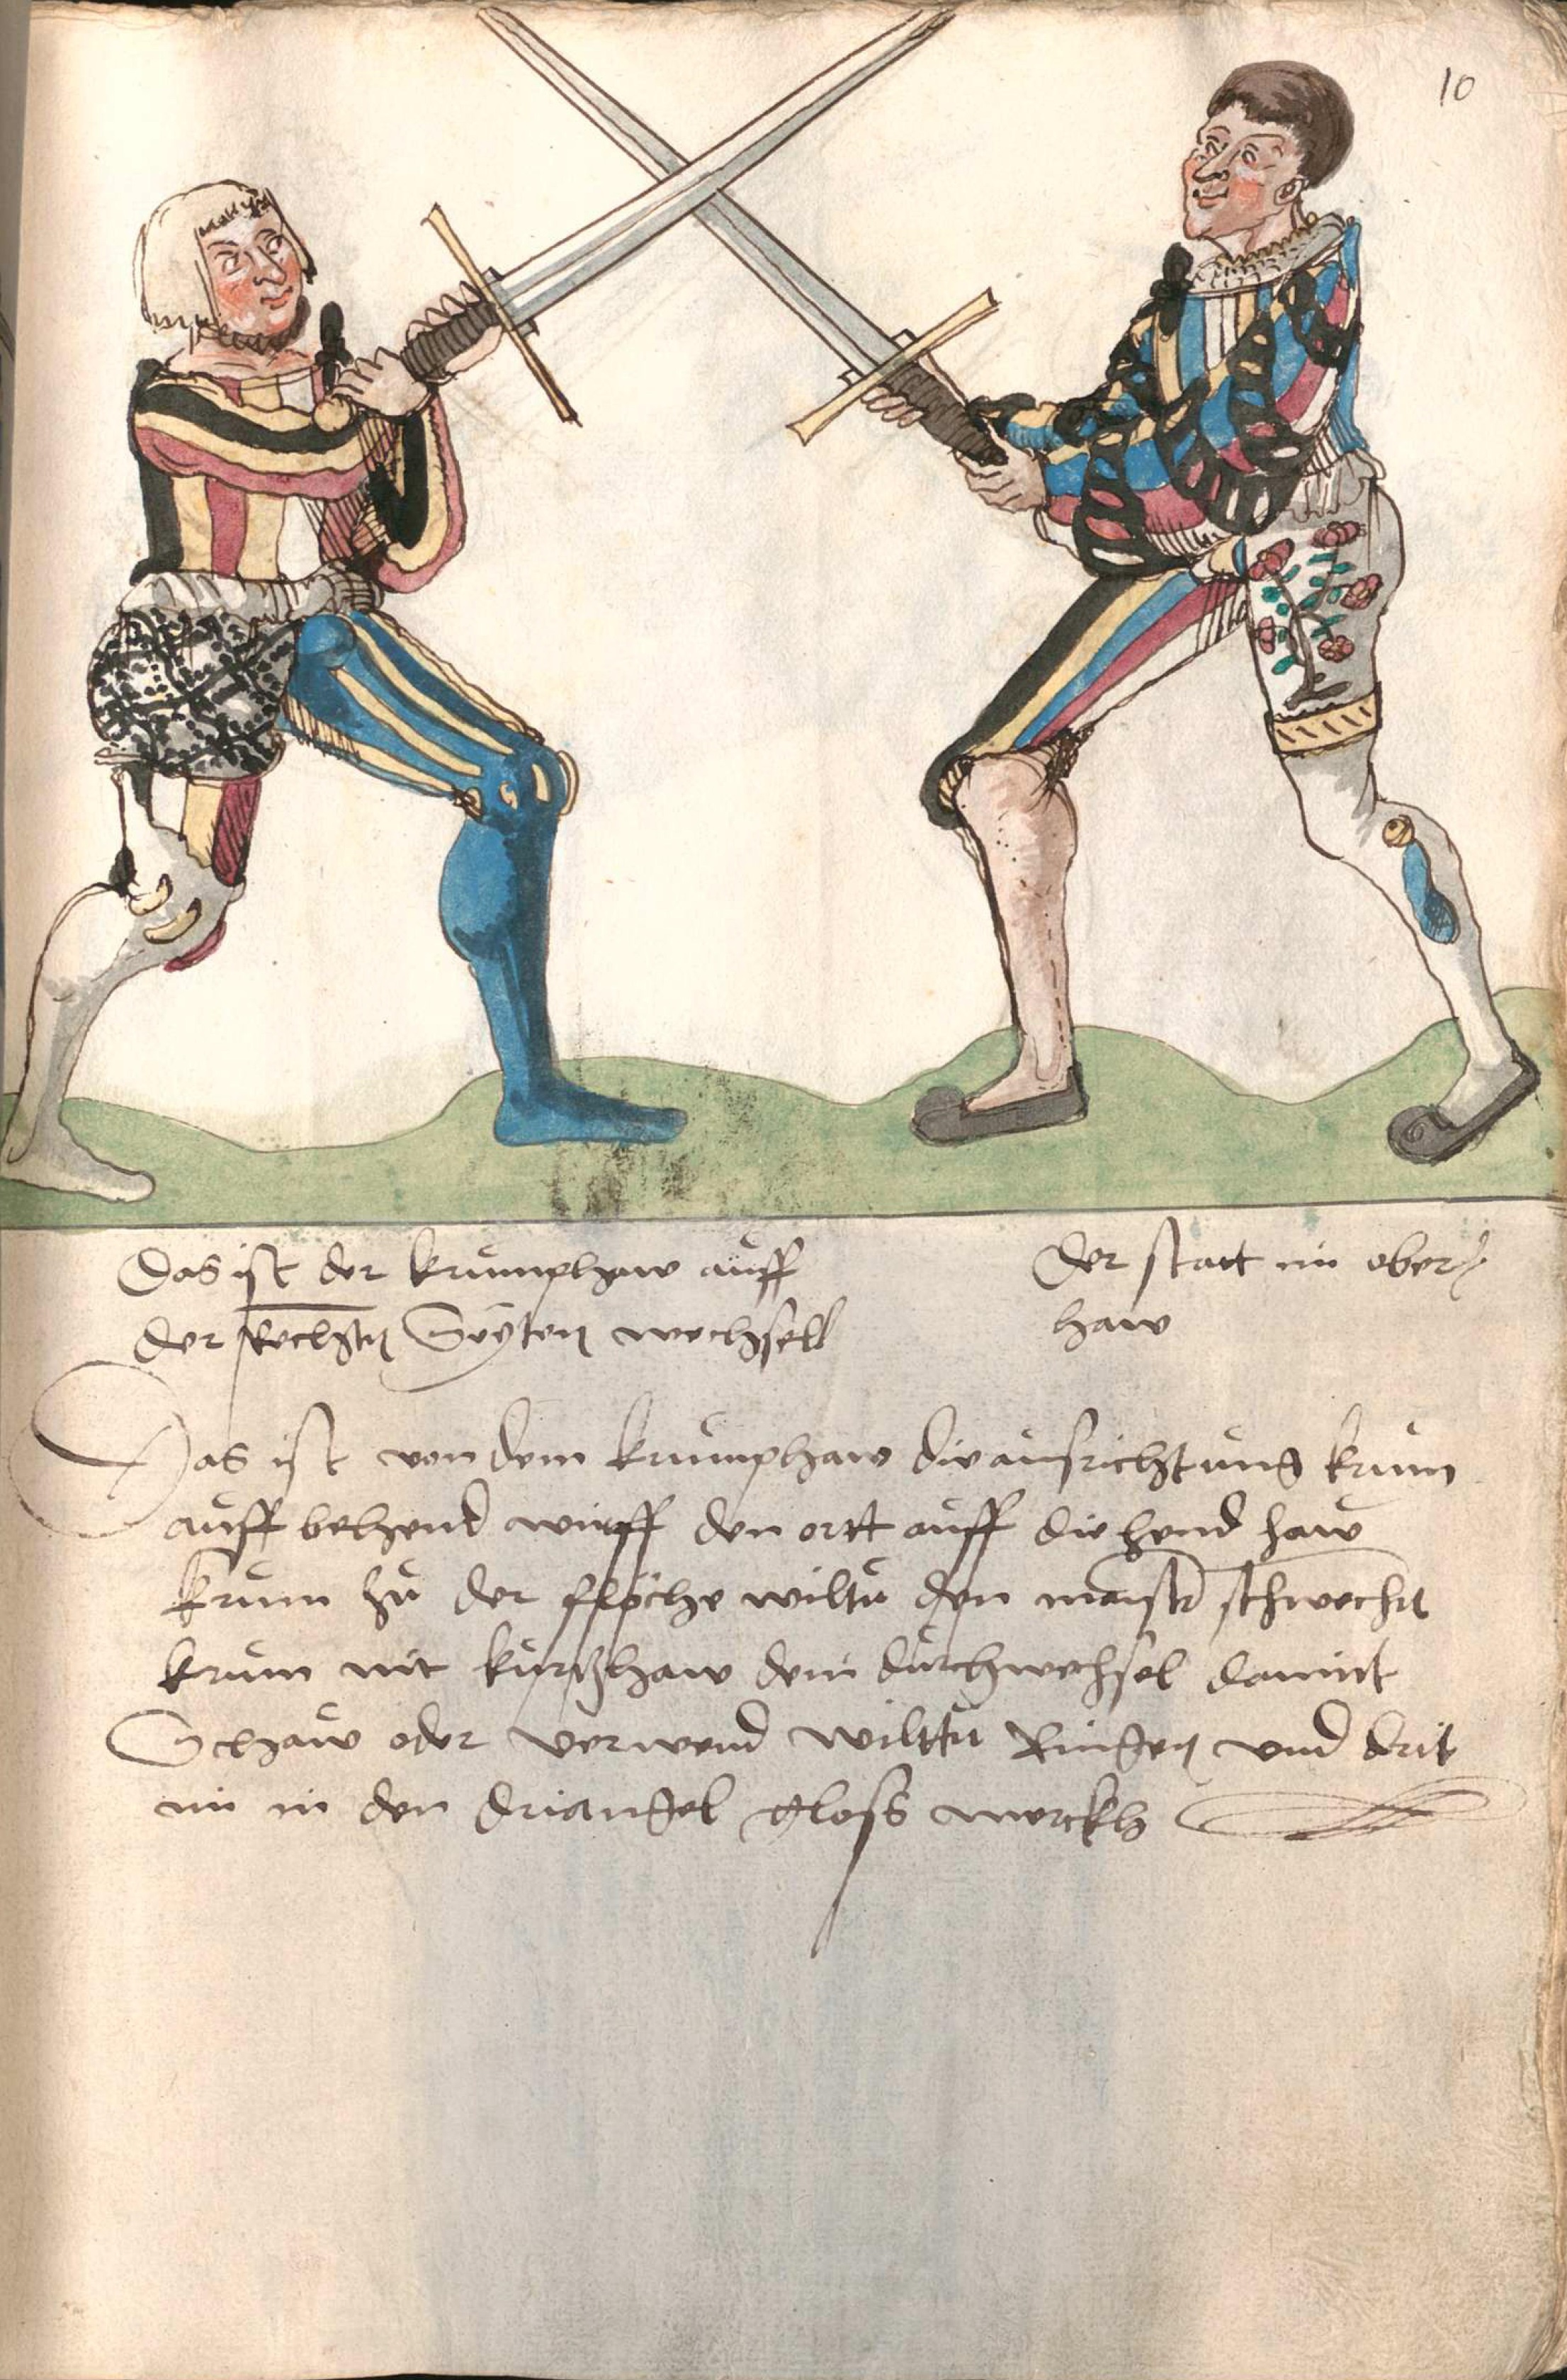 10
Das ist der krumphaw auff
der Rechten Seyten wechsell
Der statt im ober
haw
Das ist von dem krumphaw die ausrichtung krum
auff behend wirff den ortt auff die hend haw
krum zu der flöche wiltu den maister schwechn
krum nit kurtzhaw dem durchwechsel damint
Schaw oder verwend wilttu Ringen und drit
im in den driangel gloss merckh